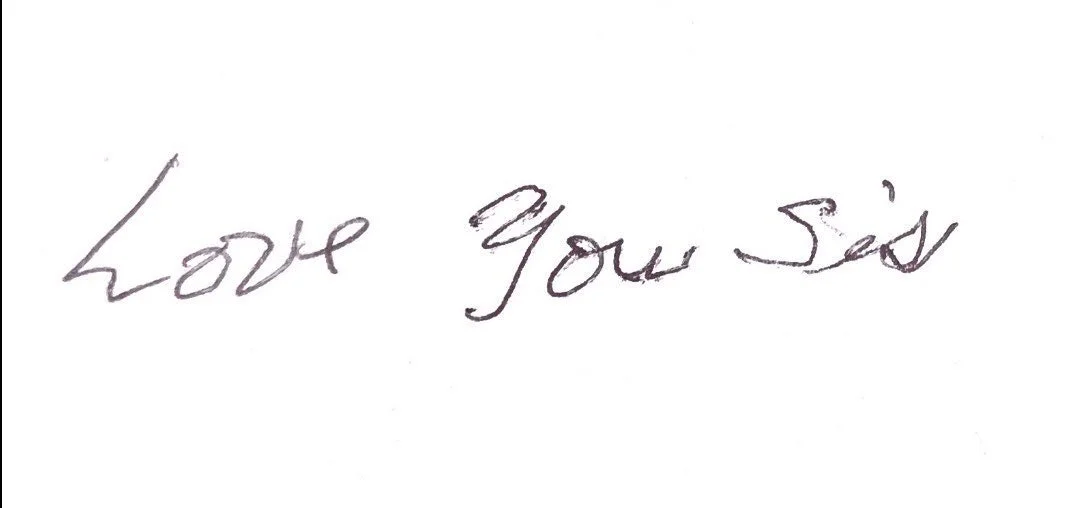 Love You Sis